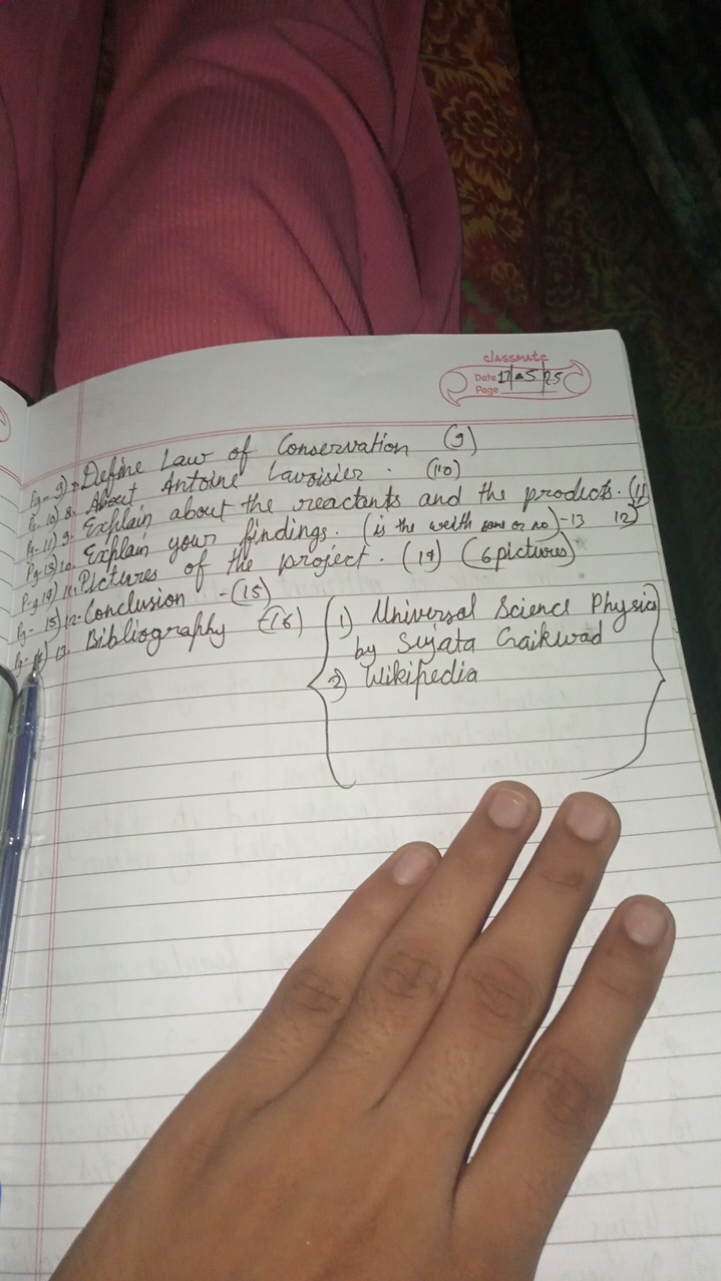 classmate
Date 17/05/25
Page
Pg-9) 7. Define Law of Conservation (9)
Pg-10) 8. About Antoine Lavoisier. (10)
Pg-11) 9. Explain about the reactants and the products. (11
12)
Pg-13) 10. Explain your findings. (is the weith same or no)-13
Pg 14) 11. Pictures of the project. (14) (6 pictures)
Pg-15) 12. Conclusion -(15)
13. Bibliography -(16)
1) Universal Science Physics
by Sujata Gaikwad
2) Wikipedia